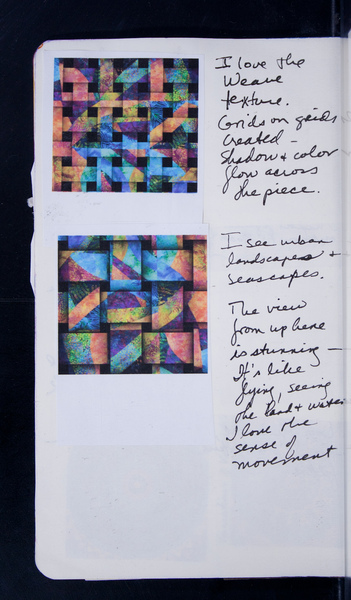 I love the
Weave
texture.
Grids on grids
created -
Shadow & color
flow across
the piece.
I see urban
landscapes &
seascapes.
The view
from up here
is stunning -
It's like
flying, seeing
the land & water
I love the
sense of
movement